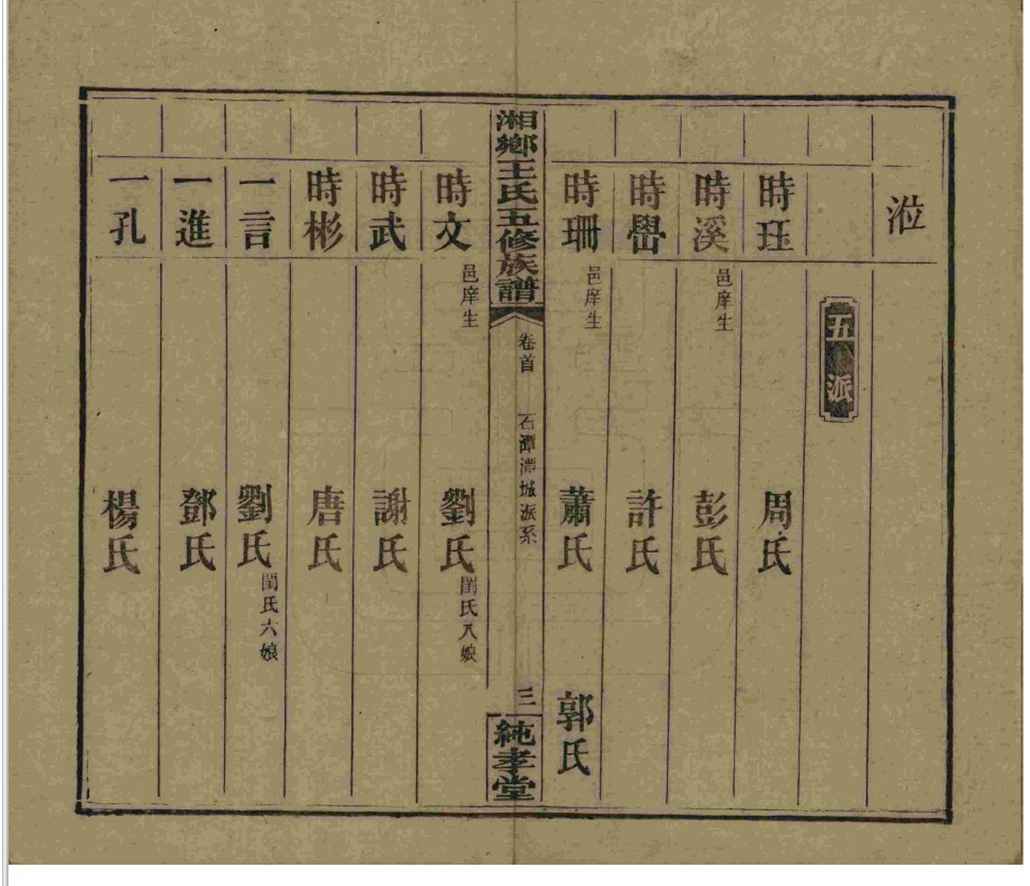 涖
五派
時珏 周氏
時溪 邑庠生 彭氏
時嶨 許氏
時珊 邑庠生 蕭氏 郭氏
湘鄉王氏五修族譜 卷首 石潭潭城派系 三 純孝堂
時文 邑庠生 劉氏 閏氏八娘
時武 謝氏
時彬 唐氏
一言 劉氏 閏氏六娘
一進 鄧氏
一孔 楊氏